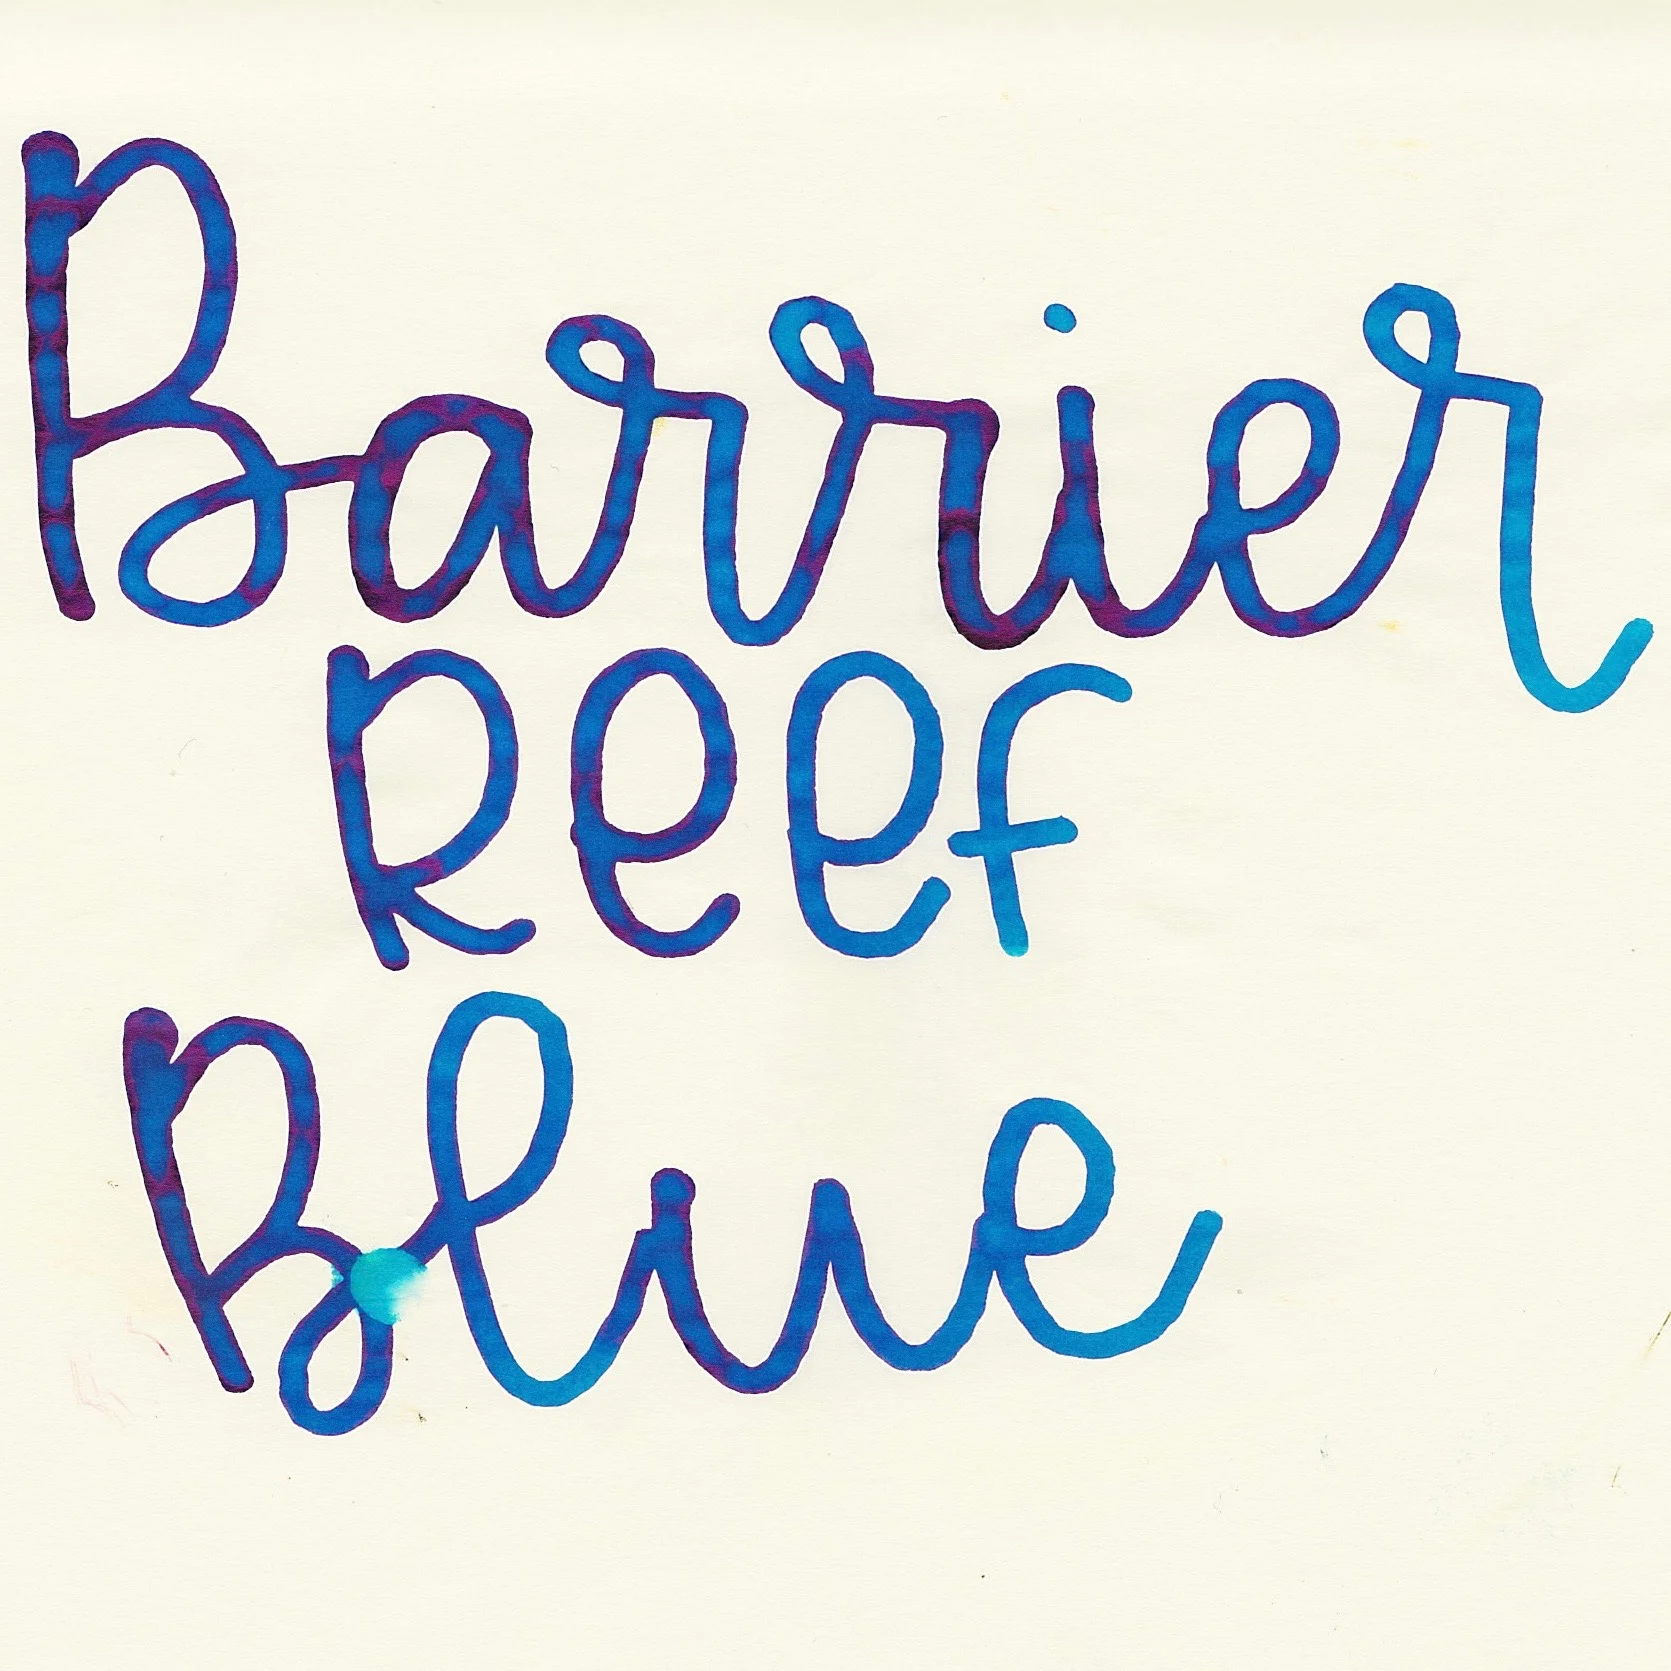 Barrier
Reef
Blue